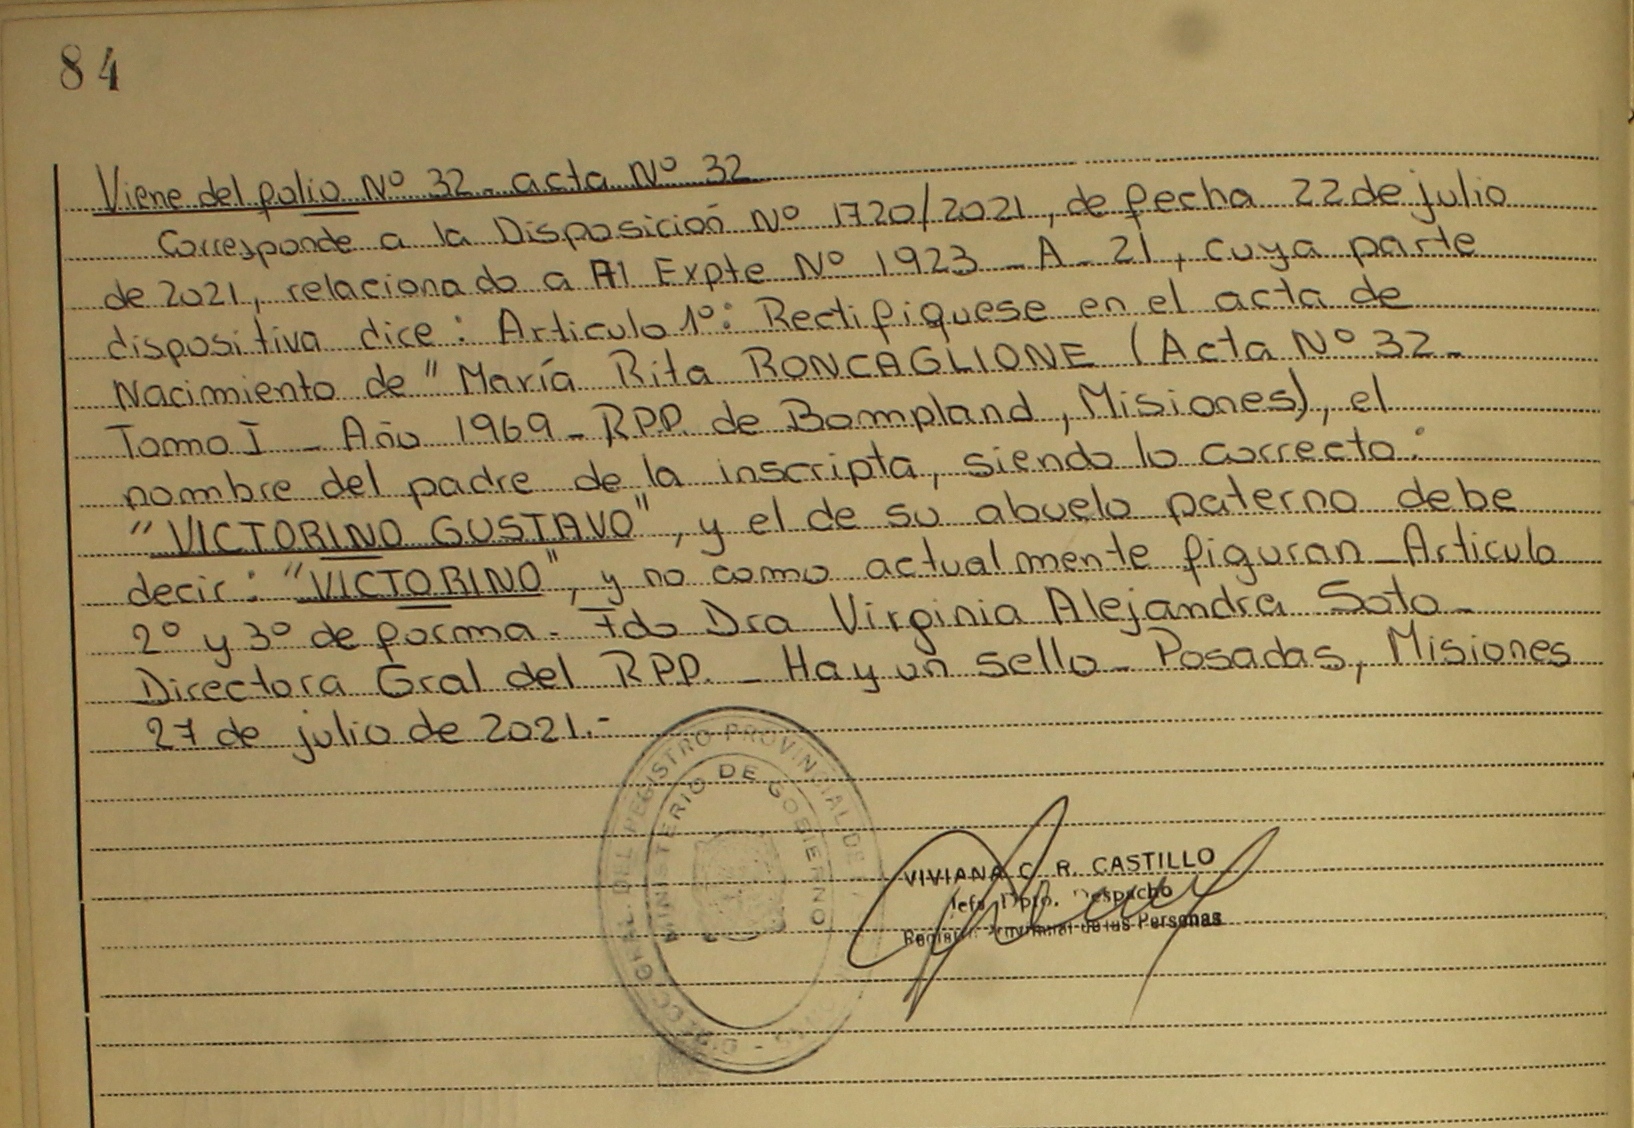 84
Viene del folio Nº 32 - acta Nº 32
Corresponde a la Disposición Nº 1720/2021, de fecha 22 de julio
de 2021, relacionado a Al Expte Nº 1923 - A - 21, cuya parte
dispositiva dice: Articulo 1º: Rectifiquese en el acta de
Nacimiento de "María Rita RONCAGLIONE (Acta Nº 32 -
Tomo I - Año 1969 - RPP. de Bompland, Misiones), el
nombre del padre de la inscripta, siendo lo correcto:
"VICTORINO GUSTAVO", y el de su abuelo paterno debe
decir: "VICTORINO", y no como actualmente figuran - Articulo
2º y 3º de forma - Fdo Dra Virginia Alejandra Soto -
Directora Gral del RPP. - Hay un sello - Posadas, Misiones
27 de julio de 2021.-
DEL REGISTRO PROVINCIAL DE
MINISTERIO DE GOBIERNO
VIVIANA C. R. CASTILLO
Jefe Dpto. Despacho
Registro Provincial de las Personas